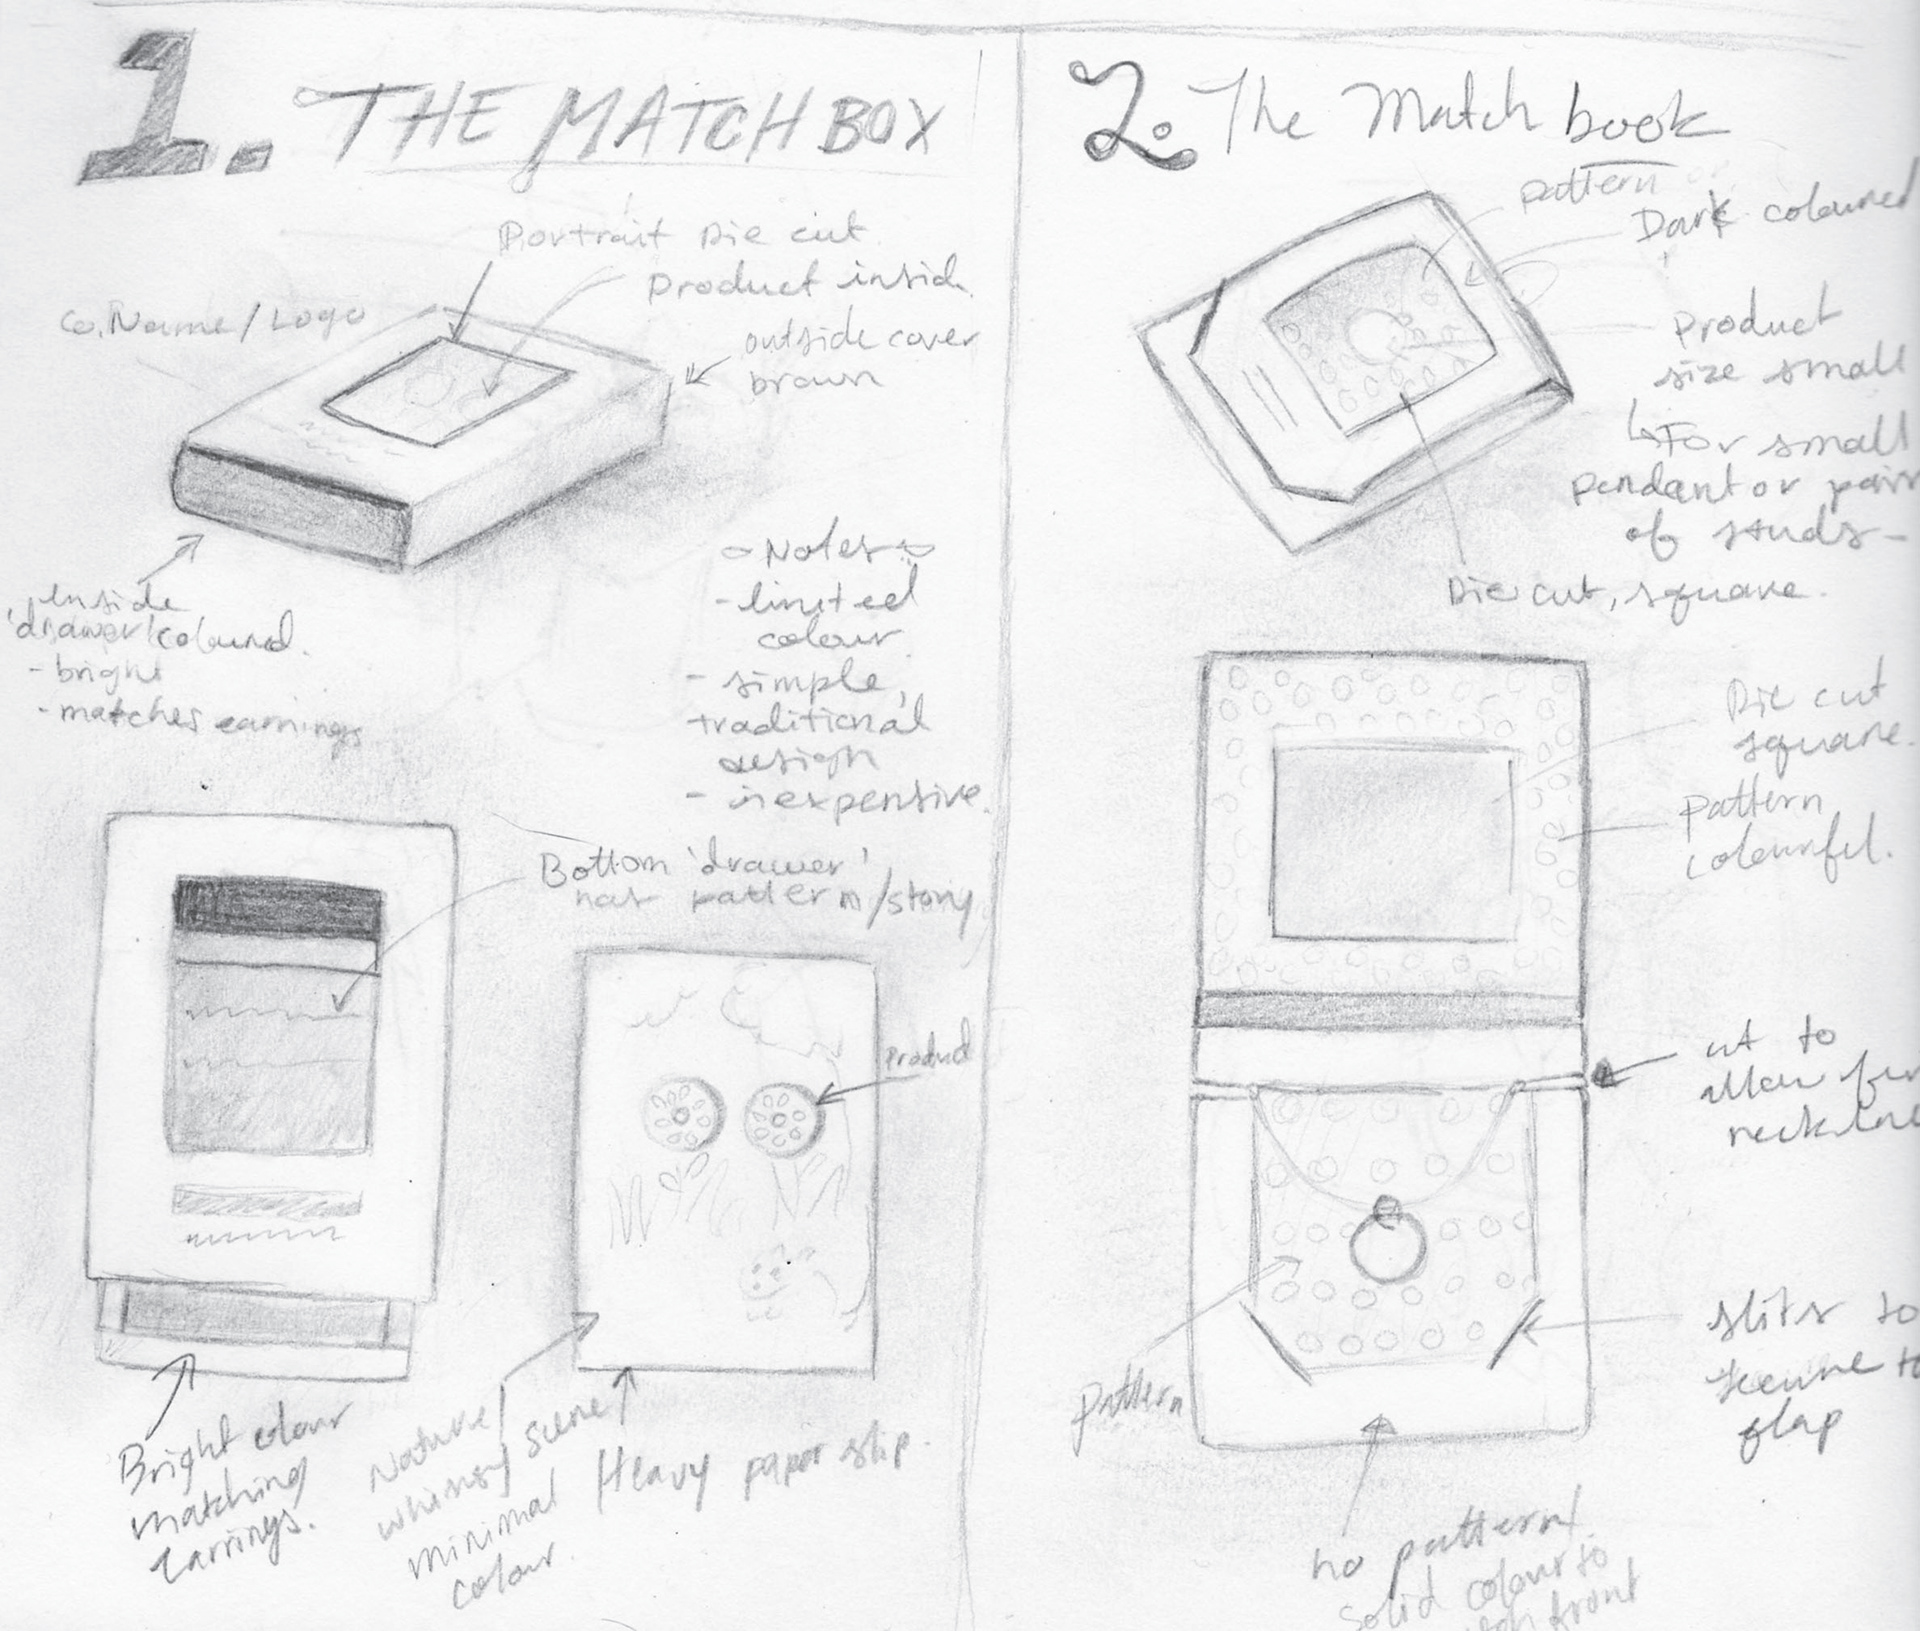 1. THE MATCH BOX
Portrait Die cut
Product inside
Co. Name / Logo
outside cover
brown
inside
'drawer' coloured.
- bright
- matches earrings
Notes
- limited
colour.
- simple,
traditional
design
- inexpensive.
Bottom 'drawer'
has pattern/story
Product
Bright colour
matching
earrings.
Nature/
whimsy scene
minimal
colour.
Heavy paper slip.
2. The Match book
pattern
Dark coloured
Product
size small
↳ For small
pendant or pair
of studs -
Die cut, square.
Die cut
square.
pattern
colourful.
cut to
allow for
pattern
slits to
secure
flap
no pattern
solid colour to
front